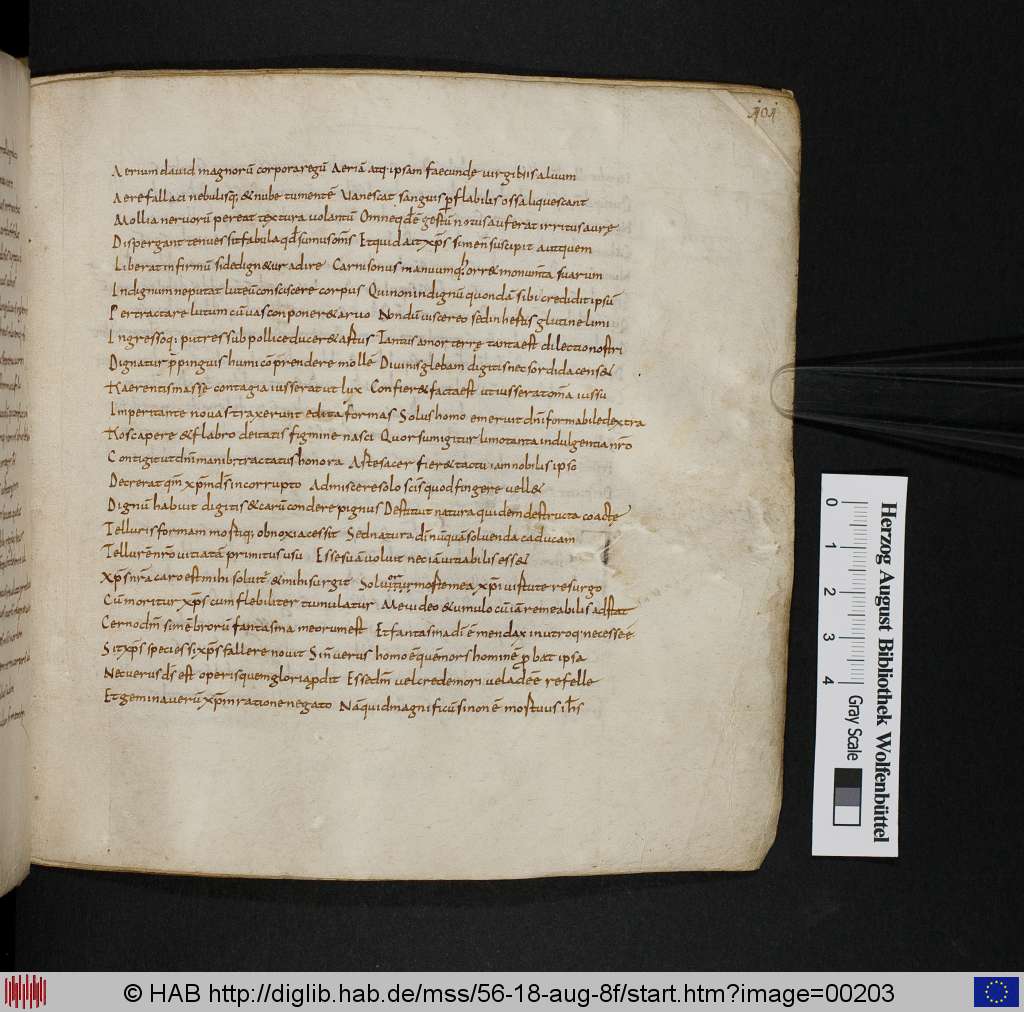 101
Aerium david magnorū corpora regū Aeriā atq; ipsam faecunde virginis aluum
Aere fallaci nebulisq; & nube tumentē Vanescat sanguis pflabilis ossa liquescant
Mollia neruorū pereat textura volantū Omne qd ē gestū notus auferat irritus aure
Dispergant tenues sit fabula qd sumus om̄s Et quid ait xp̄s si men̄ suscipit aut quem
Liberat infirmū si dedign&ur adire Carnis onus manuumq; horr& monum̄ta suarum
Indignum ne putat luteū consciscere corpus Qui non indignū quondā sibi credidit ipsū
Pertractare lutum cū uas conponer& aruo Nondū uiscereo sed inhestus glutine limi
Ingressoq; putres sub pollice ducer& astus Tantus amor terre tanta est dilectio nostri
Dignatur p̄pinguis humi cōprendere mollē Diuinis glebam digitis nec sordida cens&
Haerentis masse contagia iusserat ut lux Confier& facta est ut iusserat om̄ia iussu
Imperitante nouas traxerunt edita formas Solus homo emeruit dn̄i formabile dextra
Hos capere & flabro deitatis figmine nasci Quorsum igitur limo tanta indulgentia nr̄o
Contigit ut dn̄i manib; tractatus honora Aste sacer fier& tactu iam nobilis ipso
Decrerat qm̄ xp̄m d̄s incorrupto Admiscere solo scis quod fingere uell&
Dignū habuit digitis & carū condere pignus Destituit natura quidem destructa coacte
Telluris formam mostiq; obnoxia cessit Sed natura dī nūquā soluenda caducam
Tellurē nr̄o uitiatā primitus usu Esse suā uoluit ne ciā uitiabilis ess&
Xp̄s nr̄a caro est mihi soluit̄ & mihi surgit Soluitur moste mea xp̄i uistute resurgo
Cū moritur xp̄s cum flebiliter tumulatur Me uideo & umulo cū iā remeabilis adstat
Cerno dm̄ si mēbrorū fantasma meorum est Et fantasma dī ē mendax in utroq; necesse ē
Sit xp̄s species si xp̄s fallere nouit Sin̄ uerus homo ē quē mors hominē pbat ipsa
Nec uerus d̄s est operis quem gloria pdit Esse dm̄ uel crede mori uel adēē refelle
Et gemina uerū xp̄m ratione negato Nā quid magnificū si non ē mostuus ih̄s
0 1 2 3 4
Gray Scale
Herzog August Bibliothek Wolfenbüttel
© HAB http://diglib.hab.de/mss/56-18-aug-8f/start.htm?image=00203